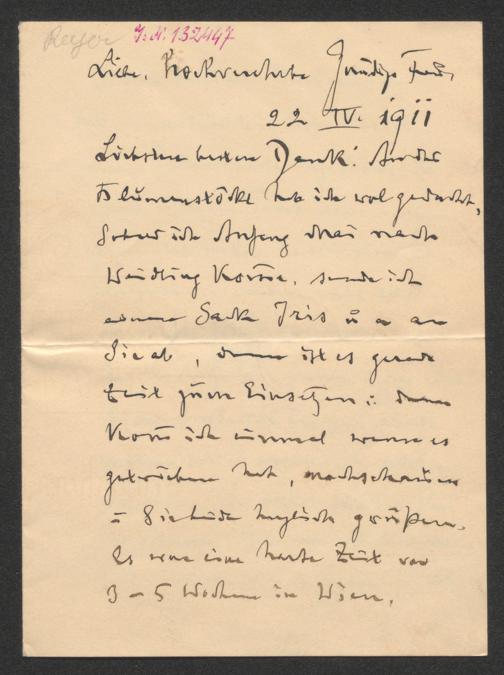 Reyer J.N. 132447
Liebe, Hochverehrte Gnädige Frau,
22 IV. 1911
besten Dank! An die
Blumenstöcke hab ich wol gedacht,
Sowie ich Anfang Mai nach
Weidling komme, sende ich
einen Sack Iris u a an
Sie ab, dann ist es gerade
Zeit zum Einsetzen: dann
Komm ich einmal wenn es
getrieben hat, nachschauen
u Sie beide herzlich grüßen.
Es war eine harte Zeit vor
3 – 5 Wochen in Wien.